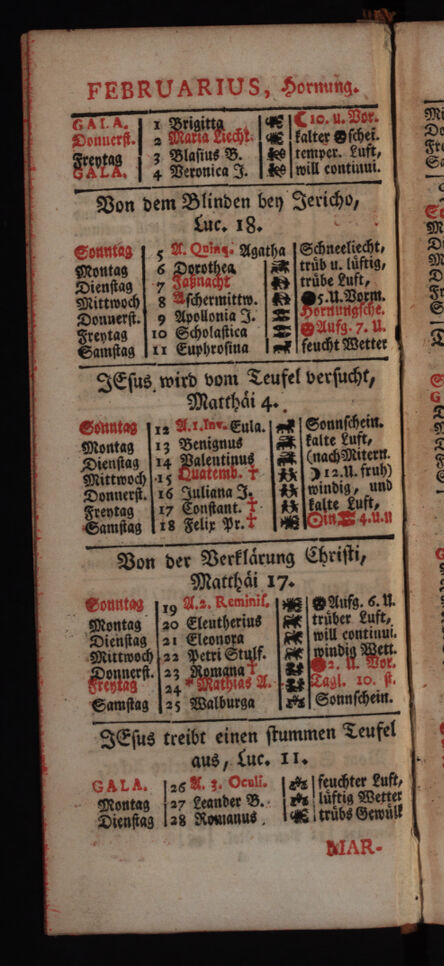 FEBRUARIUS, Hornung.
GALA. 1 Brigitta ☾ 10. u. Vor.
Donnerst. 2 Maria Liecht. kalter schei.
Freytag 3 Blasius B. temper. Luft,
GALA. 4 Veronica J. will continui.
Von dem Blinden bey Jericho,
Luc. 18.
Sonntag 5 A. Quinq. Agatha Schneeliecht,
Montag 6 Dorothea trüb u. lüftig,
Dienstag 7 Faßnacht trübe Luft,
Mittwoch 8 Aschermittw. 5. U. Vorm.
Donnerst. 9 Apollonia J. Hornungsche.
Freytag 10 Scholastica Aufg. 7. U.
Samstag 11 Euphrosina feucht Wetter
JEsus wird vom Teufel versucht,
Matthäi 4.
Sonntag 12 A. 1. Inv. Eula. Sonnschein.
Montag 13 Benignus kalte Luft,
Dienstag 14 Valentinus (nach Mitern.
Mittwoch 15 Quatemb. † ☽ 12. U. fruh)
Donnerst. 16 Juliana J. windig, und
Freytag 17 Constant. † kalte Luft,
Samstag 18 Felix Pr. † ☉in 4. U. N
Von der Verklärung Christi,
Matthäi 17.
Sonntag 19 A. 2. Reminis. Aufg. 6. U.
Montag 20 Eleutherius trüber Luft,
Dienstag 21 Eleonora will continui.
Mittwoch 22 Petri Stulf. windig Wett.
Donnerst. 23 Romana † 2. U. Vor.
Freytag 24 * Mathias A. Tagl. 10. st.
Samstag 25 Walburga Sonnschein.
JEsus treibt einen stummen Teufel
aus, Luc. 11.
GALA. 26 A. 3. Oculi. feuchter Luft,
Montag 27 Leander B. lüftig Wetter
Dienstag 28 Romanus. trübs Gewülk
MAR-